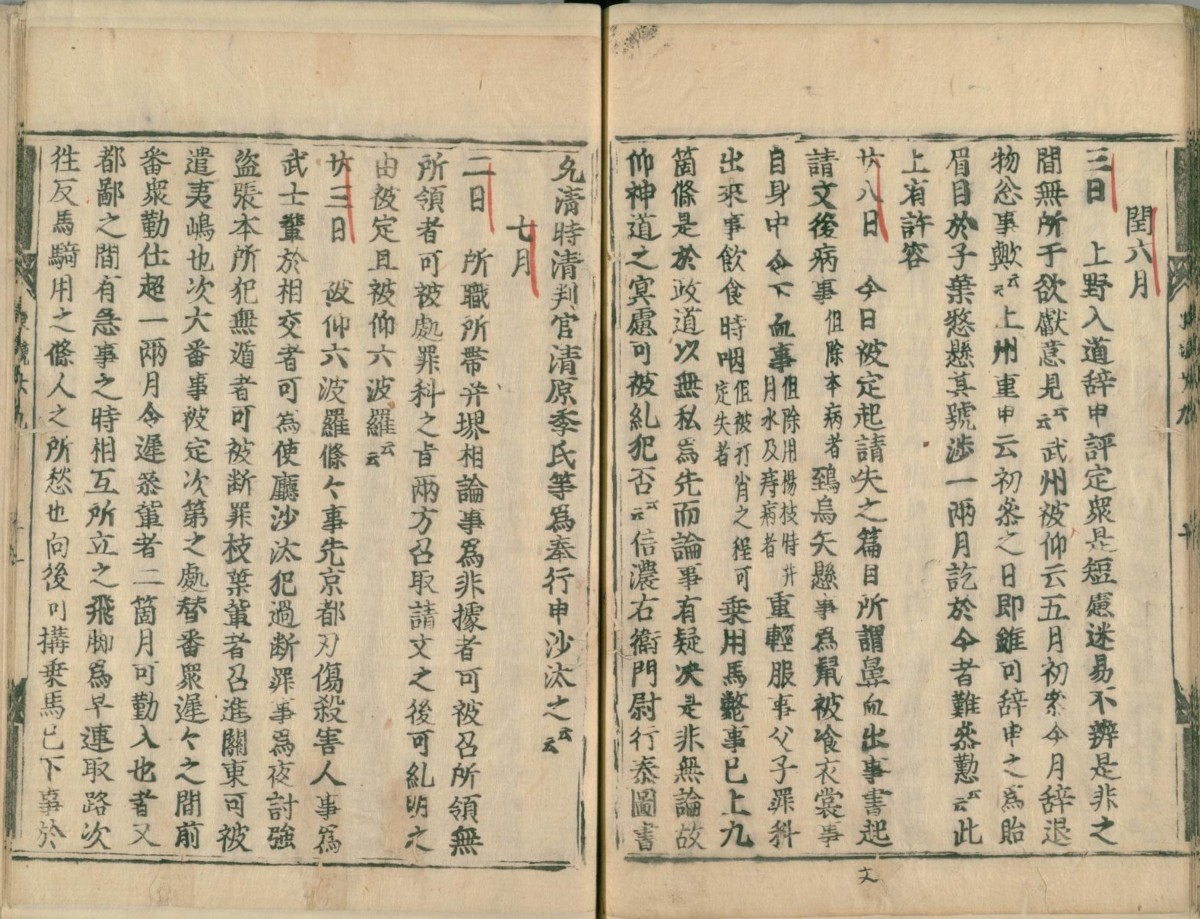 閏六月
三日　上野入道辞申評定衆是短慮迷易不辨是非之
間無所于欲獻意見云云武州被仰云五月初参今月辞退
物忩事歟云云上州重申云初参之日即雖可辞申之為貽
眉目於子葉憖懸其號渉一兩月訖於今者難参懃云云此
上有許容
廿八日　今日被定起請失之篇目所謂鼻血出事書起
請文後病事但除本病者鵄烏矢懸事爲鼠被喰衣裳事
自身中令下血事但除用楊枝時并月水及痔病者重輕服事父子罪科
出来事飲食時咽但被打背之程可定失者乗用馬斃事已上九
箇條是於政道以無私爲先而論事有疑决是非無論故
仰神道之冥慮可被糺犯否云云信濃右衛門尉行泰圖書
允清時清判官清原季氏等爲奉行申沙汰之云云
七月
二日　所職所帶并堺相論事爲非據者可被召所領無
所領者可被處罪科之旨兩方召取請文之後可糺明之
由被定且被仰六波羅云云
廿三日　被仰六波羅條々事先京都刃傷殺害人事爲
武士輩於相交者可為使廳沙汰犯過断罪事爲夜討強
盗張本所犯無遁者可被断罪枝葉輩者召進關東可被
遣夷嶋也次大番事被定次第之處替番衆遲々之間前
番衆勤仕超一兩月令遲参輩者二箇月可勤入也者又
都鄙之間有急事之時相互所立之飛脚爲早速取路次
徃反馬騎用之條人之所愁也向後可搆乗馬已下事於
文